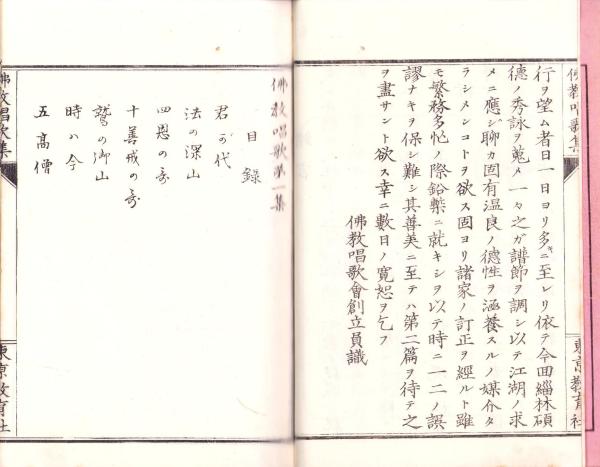 佛教唱歌集
行ヲ望ム者日一日ヨリ多キニ至レリ依テ今回緇林碩
德ノ秀詠ヲ蒐メ一々之ガ譜節ヲ調シ以テ江湖ノ求
メニ應ジ聊カ固有温良ノ德性ヲ涵養スルノ媒介タ
ラシメンコトヲ欲ス固ヨリ諸家ノ訂正ヲ經ルト雖
モ繁務多忙ノ際鉛槧ニ就キシヲ以テ時ニ一二ノ誤
謬ナキヲ保シ難シ其善美ニ至テハ第二篇ヲ待テ之
ヲ盡サント欲ス幸ニ數日ノ寛恕ヲ乞フ
佛教唱歌會創立員識
東京教育社
佛教唱歌第一集
目錄
君が代
法の深山
四恩の哥
十善戒の哥
鷲の御山
時ハ今
五高僧
佛教唱歌集
東京教育社